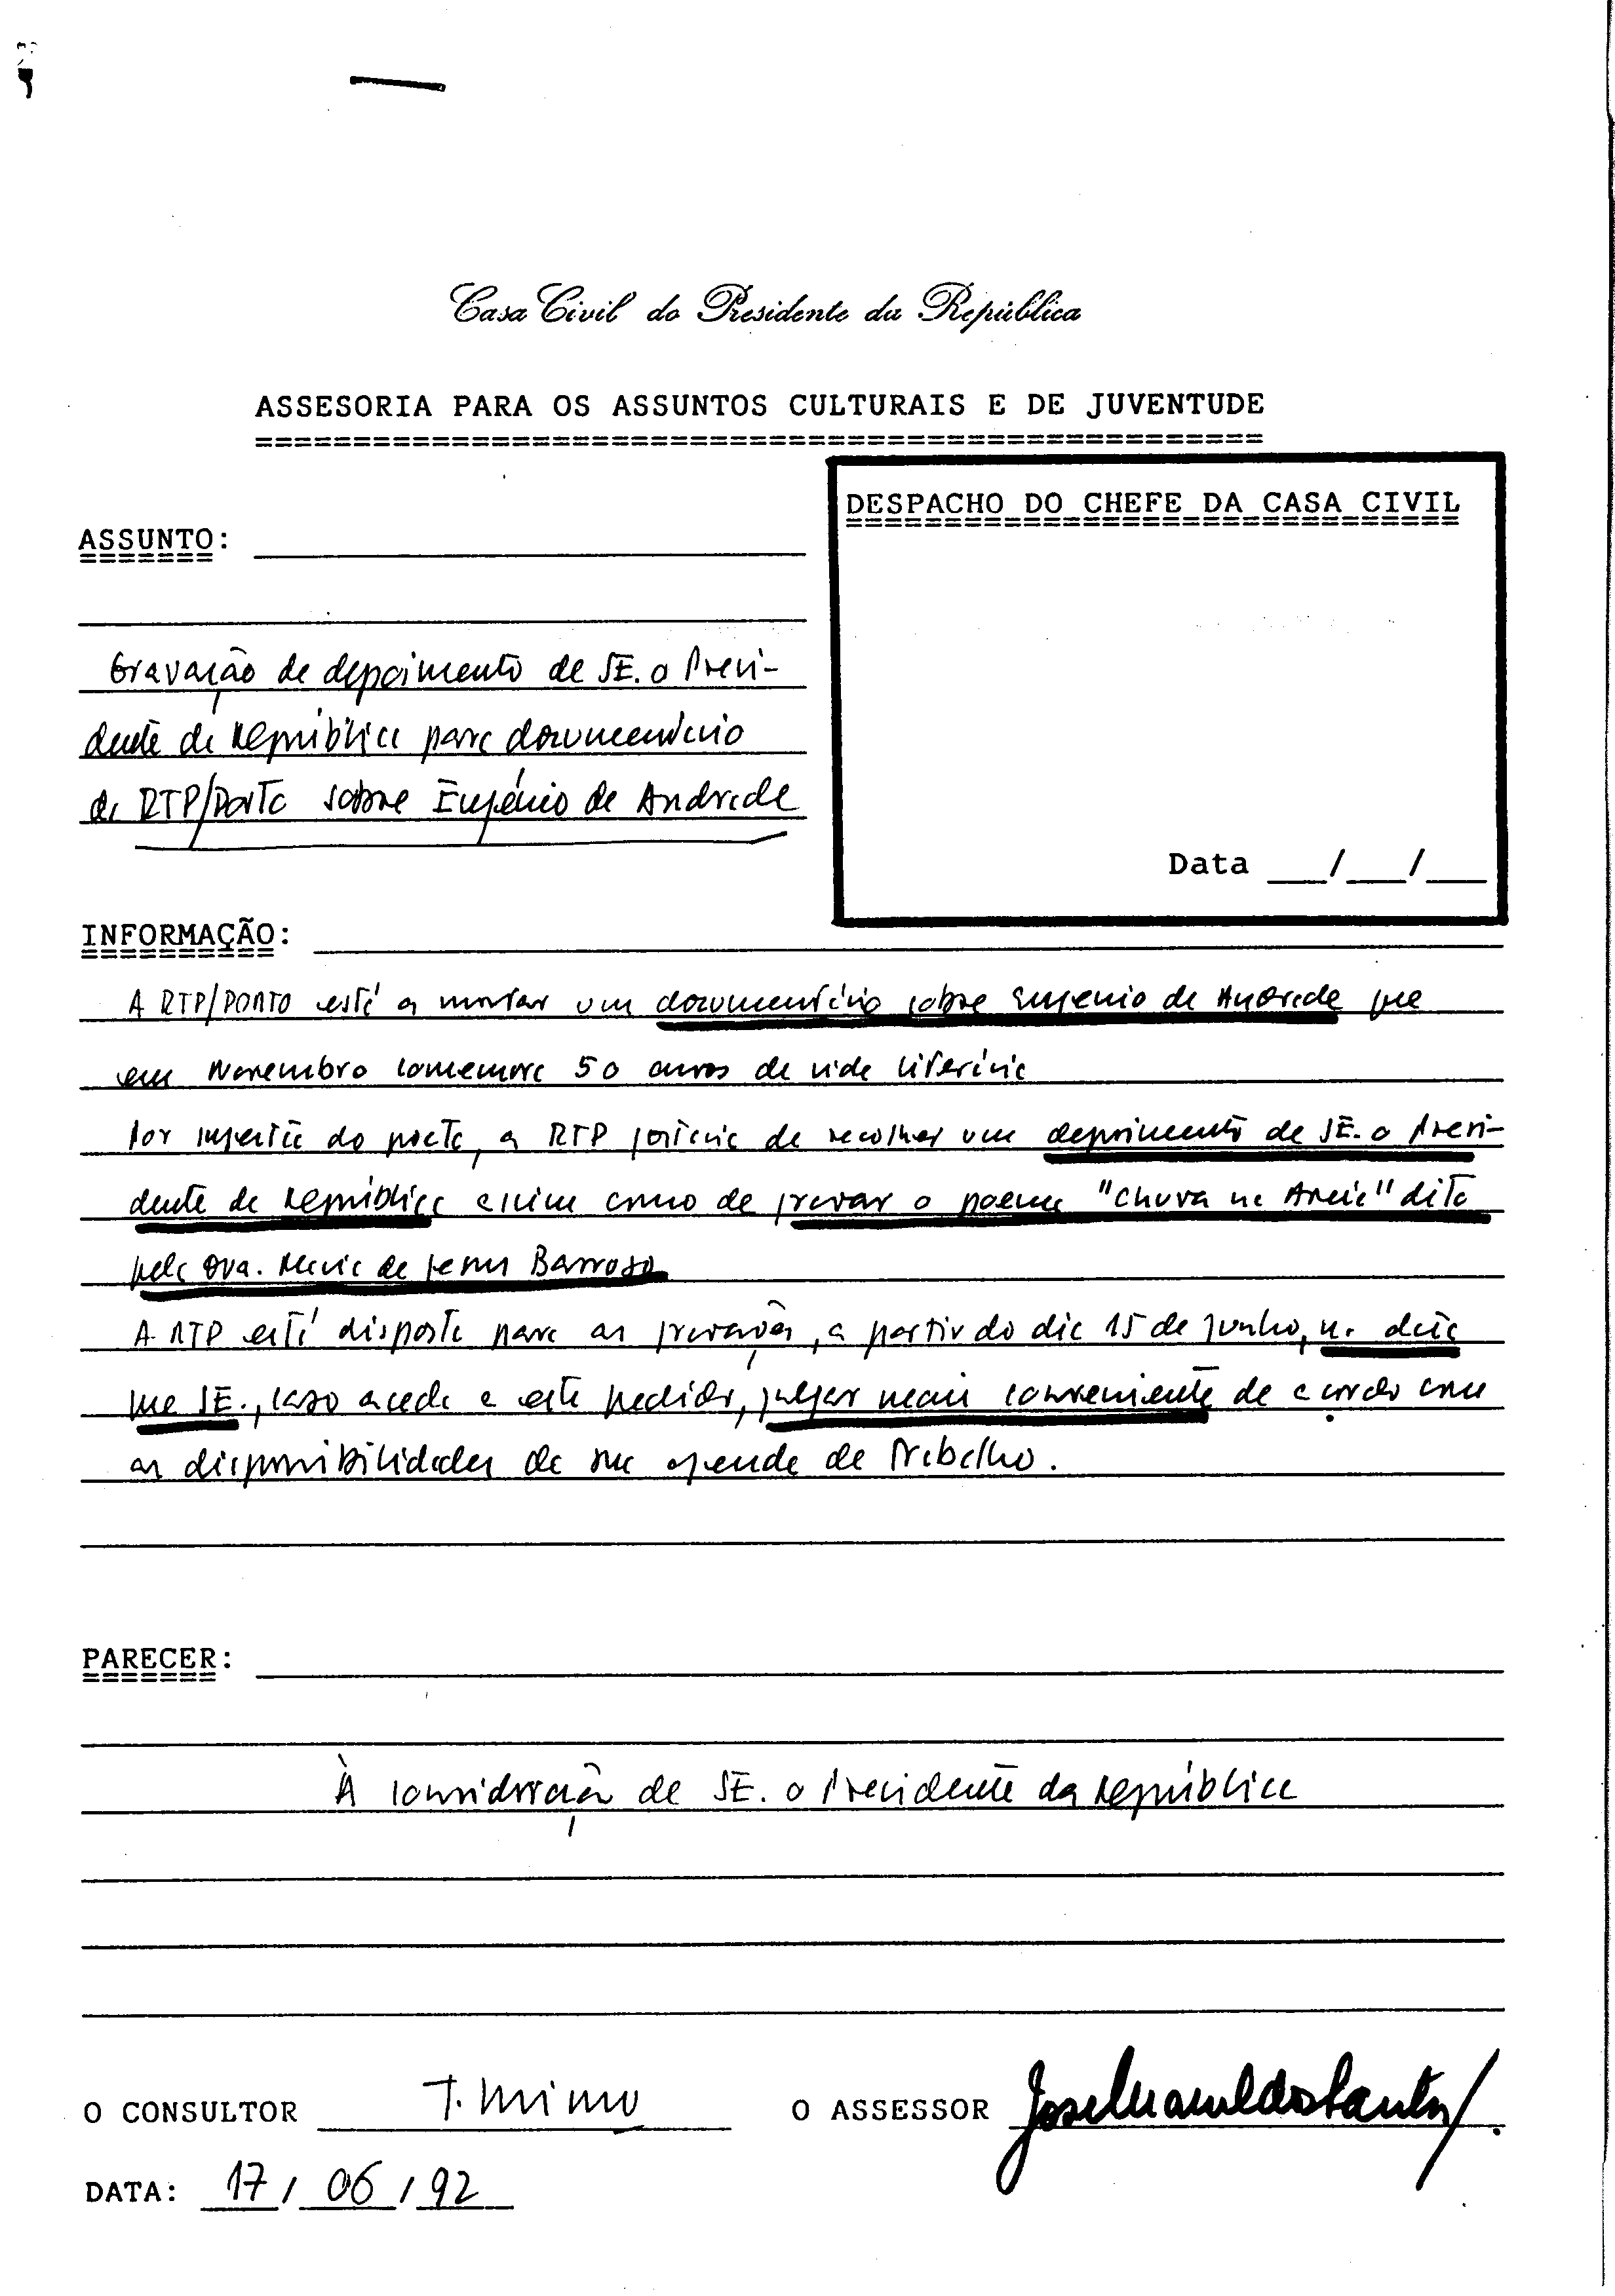 Casa Civil do Presidente da República
ASSESORIA PARA OS ASSUNTOS CULTURAIS E DE JUVENTUDE
DESPACHO DO CHEFE DA CASA CIVIL
ASSUNTO:
Gravação de depoimento de SE. o Presi-
dente da República para documentário
da RTP/Porto sobre Eugénio de Andrade
Data __/__/__
INFORMAÇÃO:
A RTP/PORTO está a montar um documentário sobre Eugenio de Andrade que
em Novembro comemora 50 anos de vida literária
Por sugestão do poeta, a RTP gostaria de recolher um depoimento de SE. o Presi-
dente da República assim como de gravar o poema "Chuva na Areia" dito
pela Dra. Maria de Jesus Barroso
A RTP está disposta para as gravações, a partir do dia 15 de Junho, na data
que SE., caso aceda a este pedido, julgar mais conveniente de acordo com
as disponibilidades da sua agenda de trabalho.
PARECER:
À consideração de SE. o Presidente da República
O CONSULTOR
O ASSESSOR José Manuel dos Santos
DATA: 17/06/92